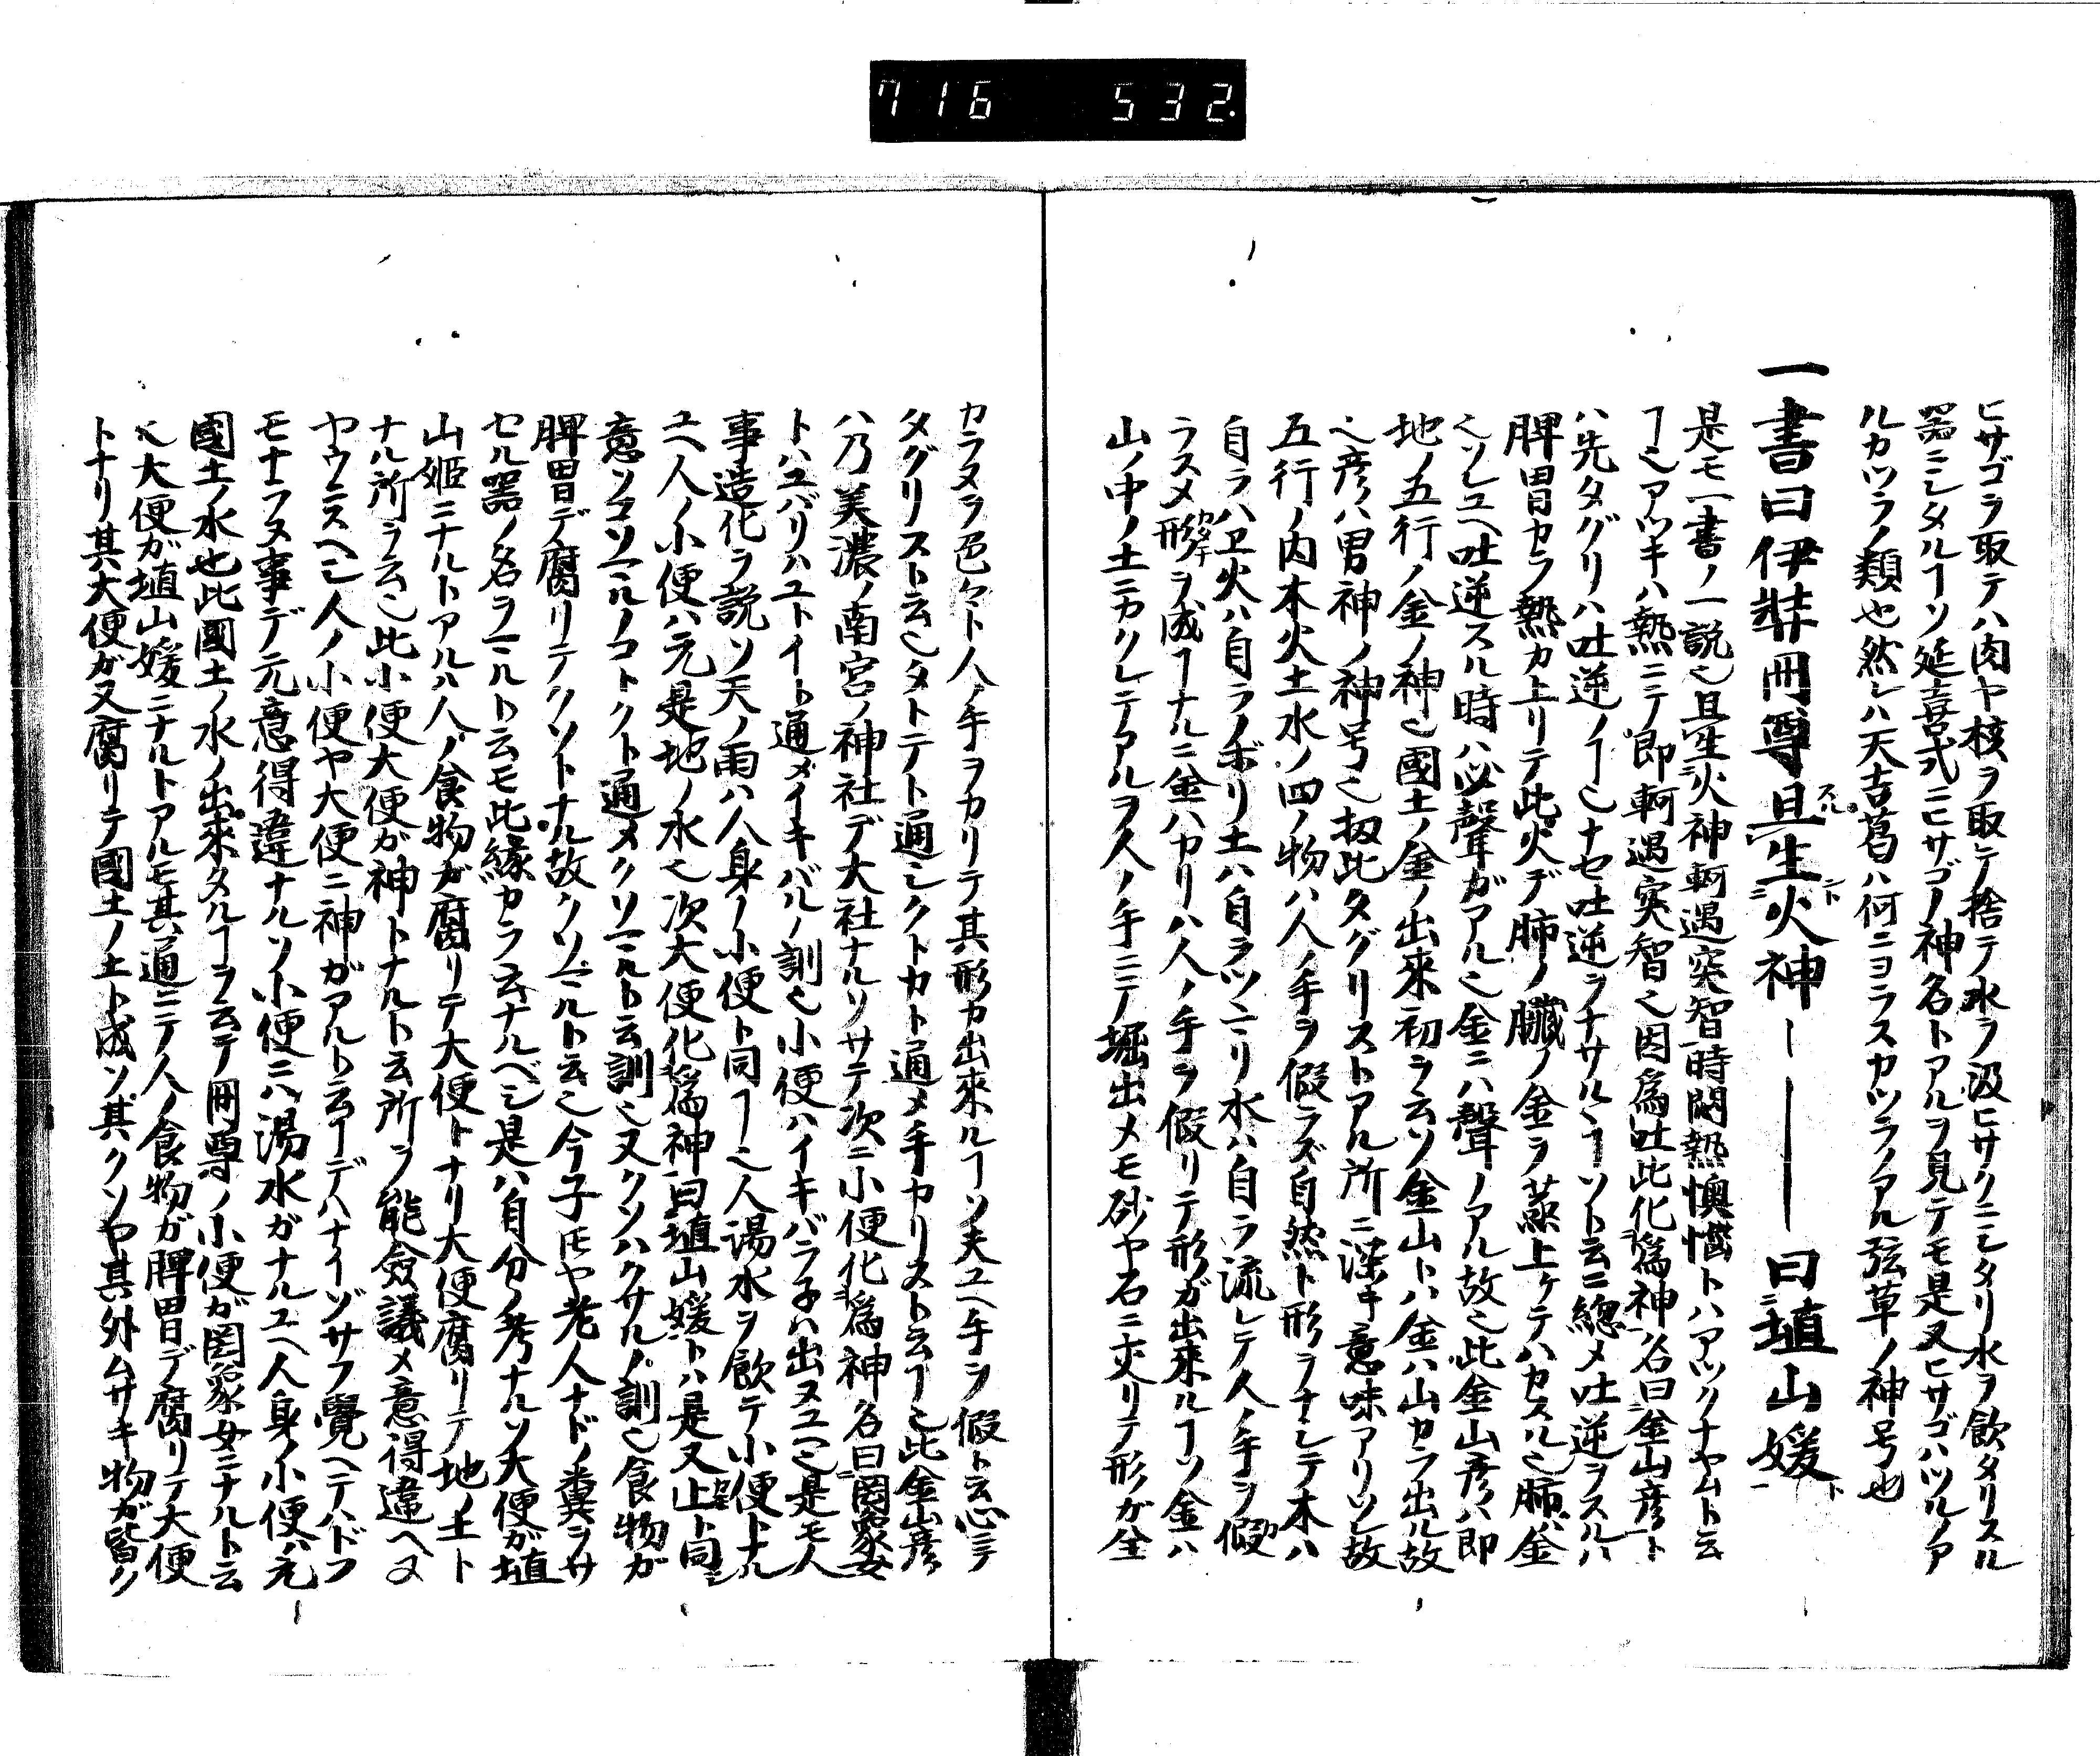 716 532.
ヒサゴヲ取テハ肉ヤ核ヲ取テ捨テ水ヲ汲ヒサクニシタリ水ヲ飲タリスル
器ニシタルヿソ延喜式ニヒサゴノ神名トアルヲ見テモ是又ヒサゴハツルノア
ルカツラノ類也然レハ天吉葛ハ何ニヨラスカツラノアル弦草ノ神号也
一書曰伊弉冊尊且生火神－－－曰埴山媛
是モ一書ノ一説也且生火神軻遇突智時悶熱懊悩トハアツクナヤムト云
ヿ也アツキハ熱ニテ即軻遇突智也因為吐此化為神名曰金山彦ト
ハ先タグリハ吐逆ノヿ也ナセ吐逆ヲナサルヽヿソト云ニ總メ吐逆ヲスルハ
脾胃カラ熱カ上リテ此火デ肺ノ臓ノ金ヲ蒸上ケテハカスル也肺ハ金
也ソレユヘ吐逆スル時ハ必聲ガアル也金ニハ聲ノアル故也此金山彦ハ即
地ノ五行ノ金ノ神也國土ノ金ノ出来初ヲ云ソ金山トハ金ハ山カラ出ル故
也彦ハ男神ノ神号也扨此タグリストアル所ニ深キ意味アリソレ故
五行ノ内木火土水ノ四ノ物ハ人ノ手ヲ假ラズ自然ト形ヲナシテ木ハ
自ラハヱ火ハ自ラノボリ土ハ自ラツニリ水ハ自ラ流レテ人ノ手ヲ假
ラスメ形ヲ成ヿナルニ金ハカリハ人ノ手ヲ假リテ形ガ出来ルヿソ金ハ
山ノ中ノ土ニカクレテアルヲ人ノ手ニテ堀出メモ砂ヤ石ニ交リテ形ガ全
カラヌヲ色々ト人ノ手ヲカリテ其形カ出来ルヿソ夫ユヘ手ヲ假ト云心ニテ
タグリスト云也タトテト通シクトカト通メ手カリスト云ヿ也此金山彦
ハ乃美濃ノ南宮ノ神社デ大社ナルソサテ次ニ小便化為神名曰罔象女
トハユバリハユトイト通メイキバルノ訓也小便ハイキバラ子ハ出ヌユヘ也是モ人
事造化ヲ説ソ天ノ雨ハ人身ノ小便ト同ヿ也人湯水ヲ飲テ小便トナル
ユヘ人ノ小便ハ元是地ノ水也次大便化為神曰埴山媛トハ是又上ト同
意ソコソニルノコトクト通メクソニルト云訓也又クソハクサルノ訓也食物ガ
脾胃デ腐リテクソトナル故クソニルト云也今子𪜈ヤ老人ナドノ糞ヲサ
セル器ノ名ヲニルト云モ此縁カラ云ナルベシ是ハ自分ノ考ナルソ大便ガ埴
山姫ニナルトアルハ人ノ食物ガ腐リテ大便トナリ大便腐リテ地ノ土ト
ナル所ヲ云也此小便大便ガ神トナルト云所ヲ能僉議メ意得違ヘヌ
ヤウニスヘシ人ノ小便ヤ大便ニ神ガアルト云ヿデハナイゾサフ覺ヘテハドフ
モナフヌ事デ元意得違ナルソ小便ニハ湯水ガナルユヘ人身ノ小便ハ元
國土ノ水也此國土ノ水ノ出来タルヿヲ云テ冊尊ノ小便ガ罔象女ニナルト云
也大便ガ埴山媛ニナルトアルモ其通ニテ人ノ食物ガ脾胃デ腐リテ大便
トナリ其大便ガ又腐リテ國土ノ土ト成ソ其クソヤ其外ムサキ物ガ皆ク